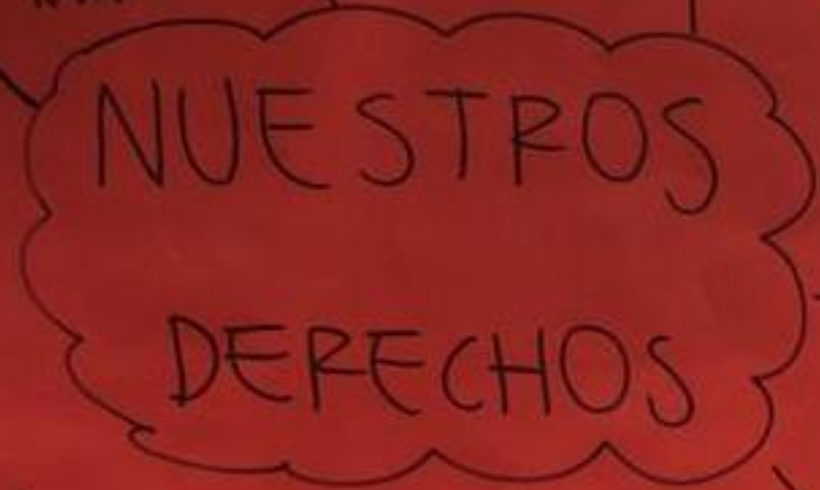 NUESTROS
DERECHOS